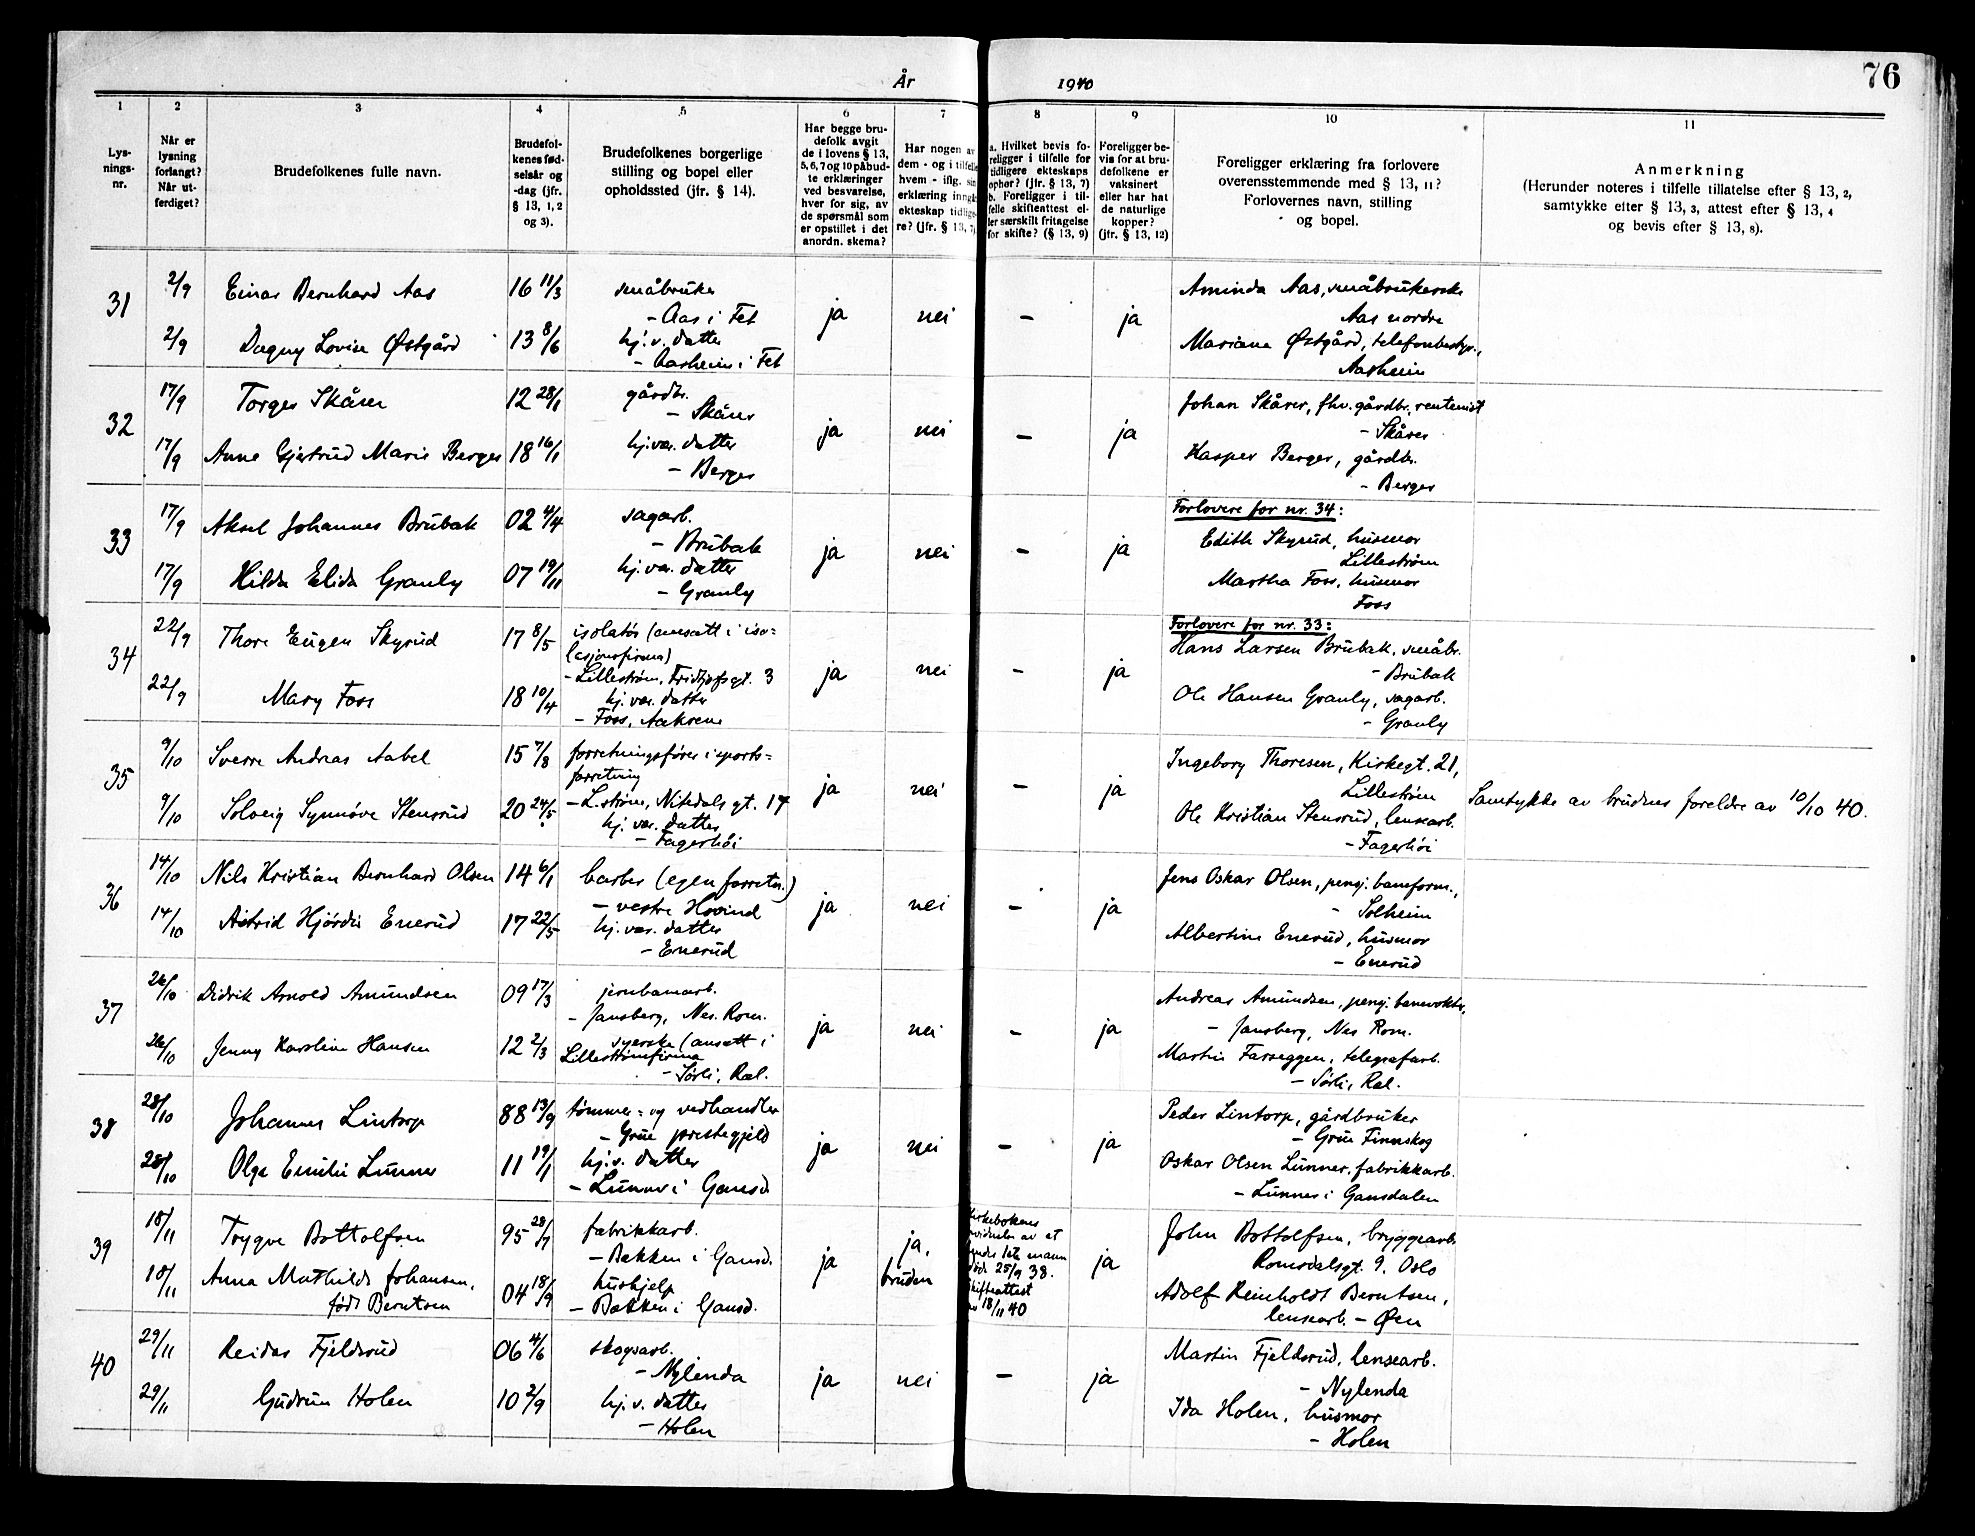 76
År 1940
1 2 3 4 5 6 7 8 9 10 11
Lys-
nings-
nr.
Når er
lysning
forlangt?
Når ut-
ferdiget?
Brudefolkenes fulle navn.
Brudefol-
kenes fød-
selsår og
-dag (jfr.
§ 13, 1, 2
og 3).
Brudefolkenes borgerlige
stilling og bopel eller
opholdssted (jfr. § 14).
Har begge bru-
defolk avgit
de i lovens § 13,
5, 6, 7 og 10 påbud-
te erklæringer
ved besvarelse,
hver for sig, av
de spørsmål som
er opstillet i det
anordn. skema?
Har nogen av
dem - og i tilfelle
hvem - iflg. sin
erklæring inngått
ekteskap tidlige-
re? (jfr. § 13, 7)
a. Hvilket bevis fo-
religger i tilfelle for
tidligere ekteskaps
ophør? (jfr. § 13, 7)
b. Foreligger i til-
felle skifteattest el-
ler særskilt fritagelse
for skifte? (§ 13, 9)
Foreligger be-
vis for at bru-
defolkene er
vaksinert
eller har hat
de naturlige
kopper?
(jfr. § 13, 12)
Foreligger erklæring fra forlovere
overensstemmende med § 13, 11?
Forlovernes navn, stilling
og bopel.
Anmerkning
(Herunder noteres i tilfelle tillatelse efter § 13, 2,
samtykke efter § 13, 3, attest efter § 13, 4
og bevis efter § 13, 8).
31 2/9 Einar Bernhard Aas 16 11/3 småbruker
- Aas i Fet ja nei - ja
2/9 Dagny Lovise Østgård 13 8/6 hj.v. datter
- Aasheim i Fet
Aminda Aas, småbrukerske
Aas nordre
Mariane Østgård, telefonbestyr.,
Aasheim
32 17/9 Torger Skårer 12 28/1 gårdbr.
- Skårer ja nei - ja
17/9 Anne Gjertrud Marie Berger 18 16/1 hj.vær. datter
- Berger
Johan Skårer, fhv. gårdbr., rentenist
- Skårer
Kasper Berger, gårdbr.
- Berger
33 17/9 Aksel Johannes Brubak 02 4/4 sagarb.
- Brubak ja nei - ja
17/9 Hilda Elida Granly 07 19/11 hj.vær. datter
- Granly
Forlovere for nr. 34:
Edith Skyrud, husmor
Lillestrøm
Martha Foss, husmor
Foss
34 22/9 Thore Eugen Skyrud 17 8/5 isolatør (ansatt i iso=
lasjonsfirma)
- Lillestrøm, Fridtjofsgt. 3 ja nei - ja
22/9 Mary Foss 18 10/4 hj. vær. datter
- Foss, Aakrene
Forlovere for nr. 33:
Hans Larsen Brubak, småbr.
- Brubak
Ole Hansen Granly, sagarb.
- Granly
35 9/10 Sverre Andreas Aabel 15 7/8 forretningsfører i sports=
forretning
- L.strøm, Nitedals gt. 17 ja nei - ja
9/10 Solveig Synnøve Stensrud 20 24/5 hj. vær. datter
- Fagerhøi
Ingeborg Thoresen, Kirkegt. 21,
Lillestrøm
Ole Kristian Stensrud, lensearb.
- Fagerhøi
Samtykke av brudens foreldre av 10/10 40.
36 14/10 Nils Kristian Bernhard Olsen 14 6/1 barber (egen forretn.)
- vestre Hovind ja nei - ja
14/10 Astrid Hjørdis Enerud 17 22/5 hj. vær. datter
- Enerud
Jens Oskar Olsen, pensj. baneform.,
- Solheim
Albertine Enerud, husmor
- Enerud
37 26/10 Didrik Arnold Amundsen 09 17/3 jernbanearb.
- Jansberg, Nes. Rom. ja nei - ja
26/10 Jenny Karoline Hansen 12 2/3 syerske (ansatt i
Lillestrømfirma
- Sørli, Ræl.
Andreas Amundsen, pensj. banevokter,
- Jansberg, Nes Rom.
Martin Farseggen, telegrafarb.
- Sørli, Ræl.
38 28/10 Johannes Lintorp 88 13/9 tømmer= og vedhandler
- Grue prestegjeld ja nei - ja
28/10 Olga Emilie Lunner 11 19/1 hj.v. datter
- Lunner i Gansd.
Peder Lintorp, gårdbruker
- Grue Finnskog
Oskar Olsen Lunner, fabrikkarb.
- Lunner i Gansdalen
39 18/11 Trygve Bottolfsen 95 28/7 fabrikkarb.
- Bakken i Gansd. ja ja,
bruden ja
18/11 Anna Mathilde Johansen,
født Berntsen 04 18/9 hushjelp
- Bakken i Gansd.
mann
25/9 38.
skifteattest
18/11 40
John Bottolfsen, bryggearb.
Romsdalsgt. 9. Oslo
Adolf Reinholdt Berntsen,
lensearb. - Øen
40 29/11 Reidar Fjeldsrud 06 4/6 skogsarb.
- Nylenda ja nei - ja
29/11 Gudrun Holen 10 2/9 hj.v. datter
- Holen
Martin Fjeldsrud, lensearb.
- Nylenda
Ida Holen, husmor
- Holen